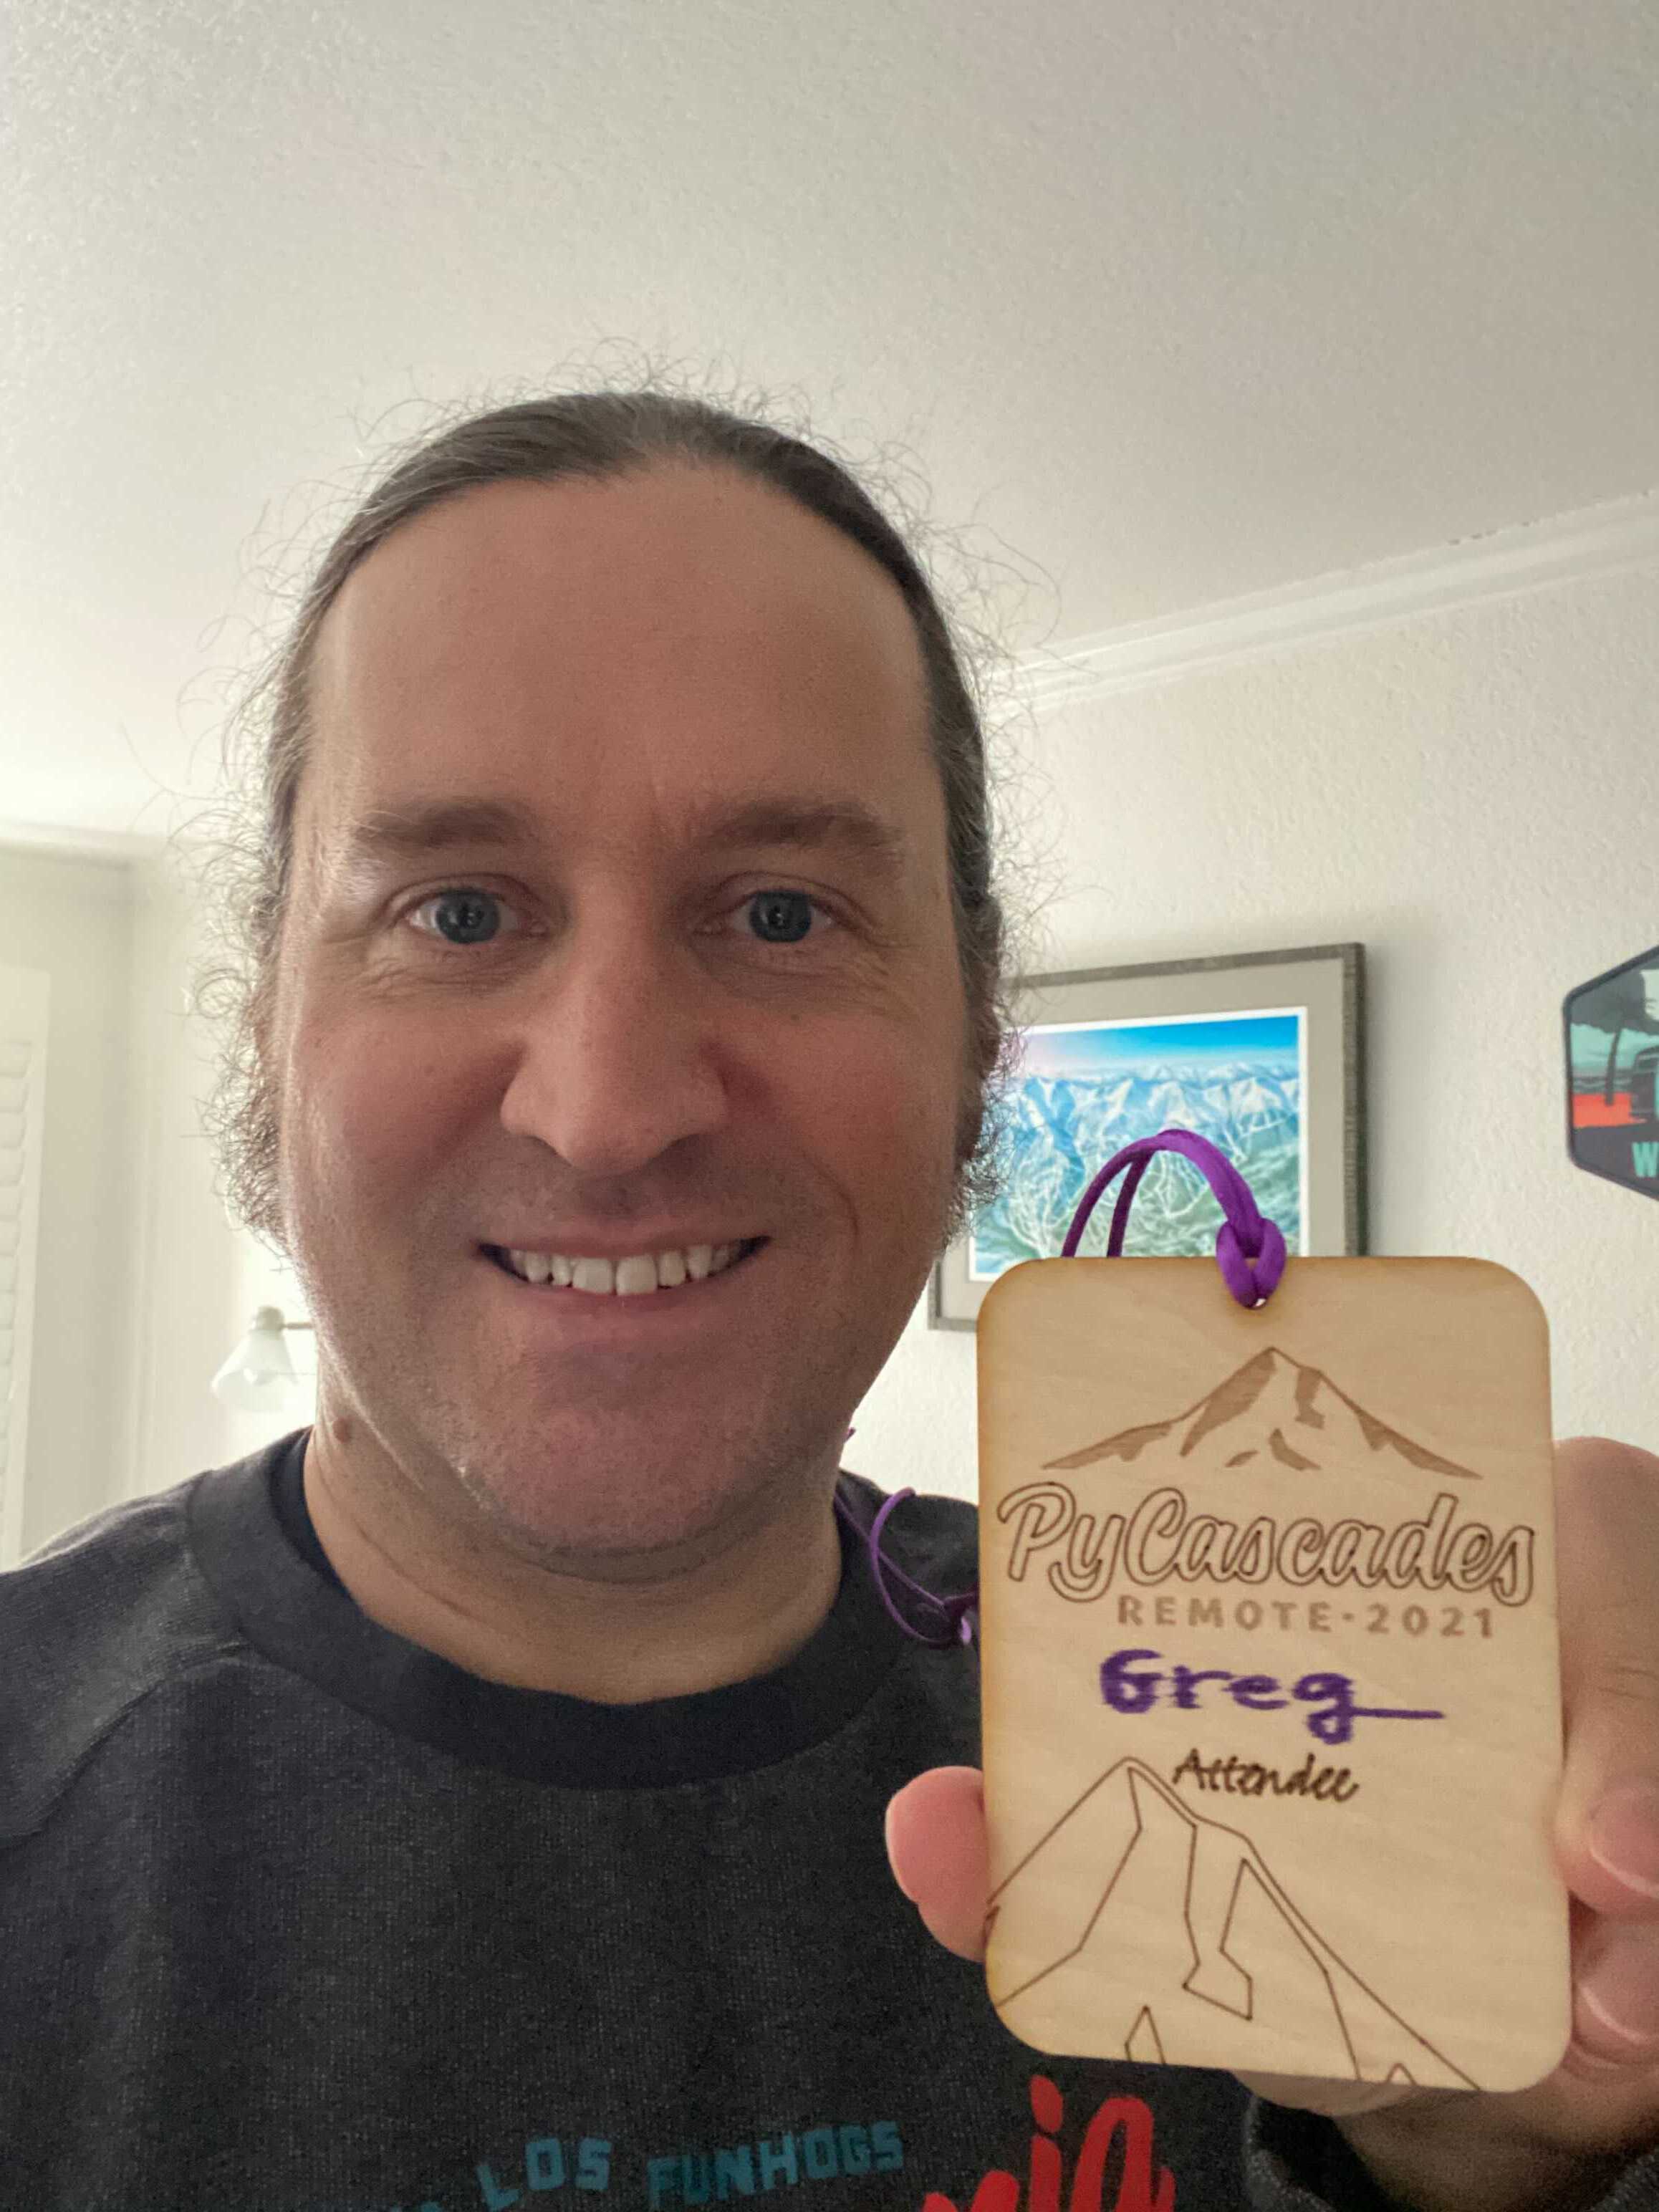 PyCascades
REMOTE·2021
Greg
Attendee
W
LOS FUNHOGS